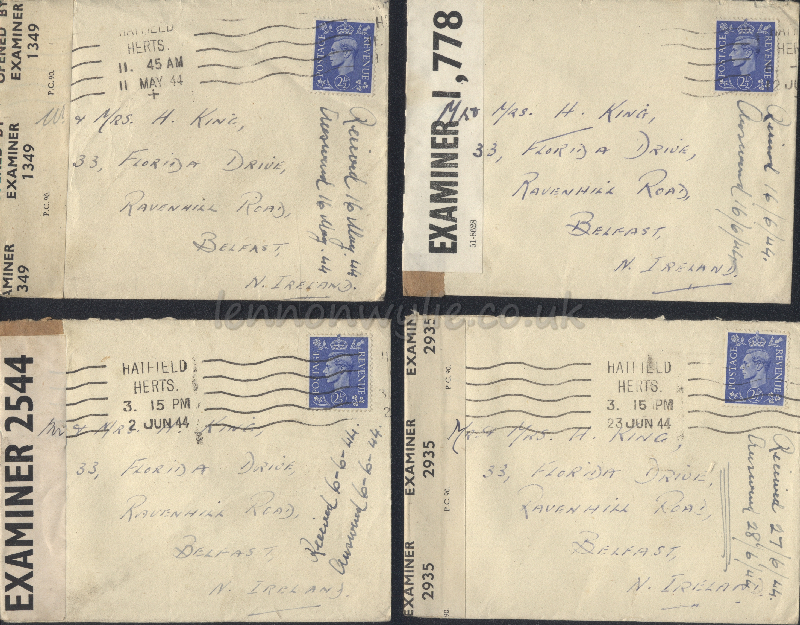 OPENED BY
EXAMINER
1349
P.C. 90.
EXAMINER
1349
P.C. 90.
AMINER
349
HATFIELD
HERTS.
11. 45 AM
11 MAY 44
POSTAGE
REVENUE
2½
& MRS. H. KING,
33, FLORIDA DRIVE,
RAVENHILL ROAD,
BELFAST,
N. IRELAND.
Received 16 May. 44
Answered 16 May. 44
EXAMINER 1,778
51-8028
POSTAGE
REVENUE
2½
MRS. H. KING,
33, FLORIDA DRIVE,
RAVENHILL ROAD,
BELFAST,
N. IRELAND.
Received 16/6/44.
Answered 16/6/44.
lennonwylie.co.uk
EXAMINER 2544
HATFIELD
HERTS.
3. 15 PM
2 JUN 44
POSTAGE
REVENUE
2½
Mr & MRS. H. KING,
33, FLORIDA DRIVE,
RAVENHILL ROAD,
BELFAST,
N. IRELAND.
Received 6-6-44.
Answered 6-6-44.
EXAMIN
2935
P.C. 90.
EXAMINER
2935
P.C. 90.
EXAMINER
2935
90.
HATFIELD
HERTS.
3. 15 PM
23 JUN 44
POSTAGE
REVENUE
2½
Mr & MRS. H. KING,
33, FLORIDA DRIVE,
RAVENHILL ROAD,
BELFAST,
N. IRELAND.
Received 27/6/44.
Answered 28/6/44.